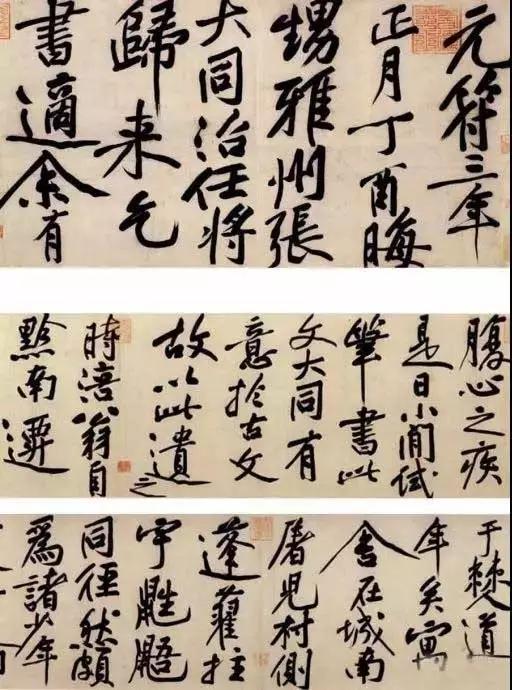 元符三年
正月丁酉晦
甥雅州張
大同治任將
歸来乞
書適余有
腹心之疾
是日小閒試
筆書此
文大同有
意於古文
故以此遺之
時涪翁自
黔南遷
于僰道
年矣寓
舍在城南
屠兒村側
蓬藋拄
宇鼪鼯
同徑然頗
為諸少年